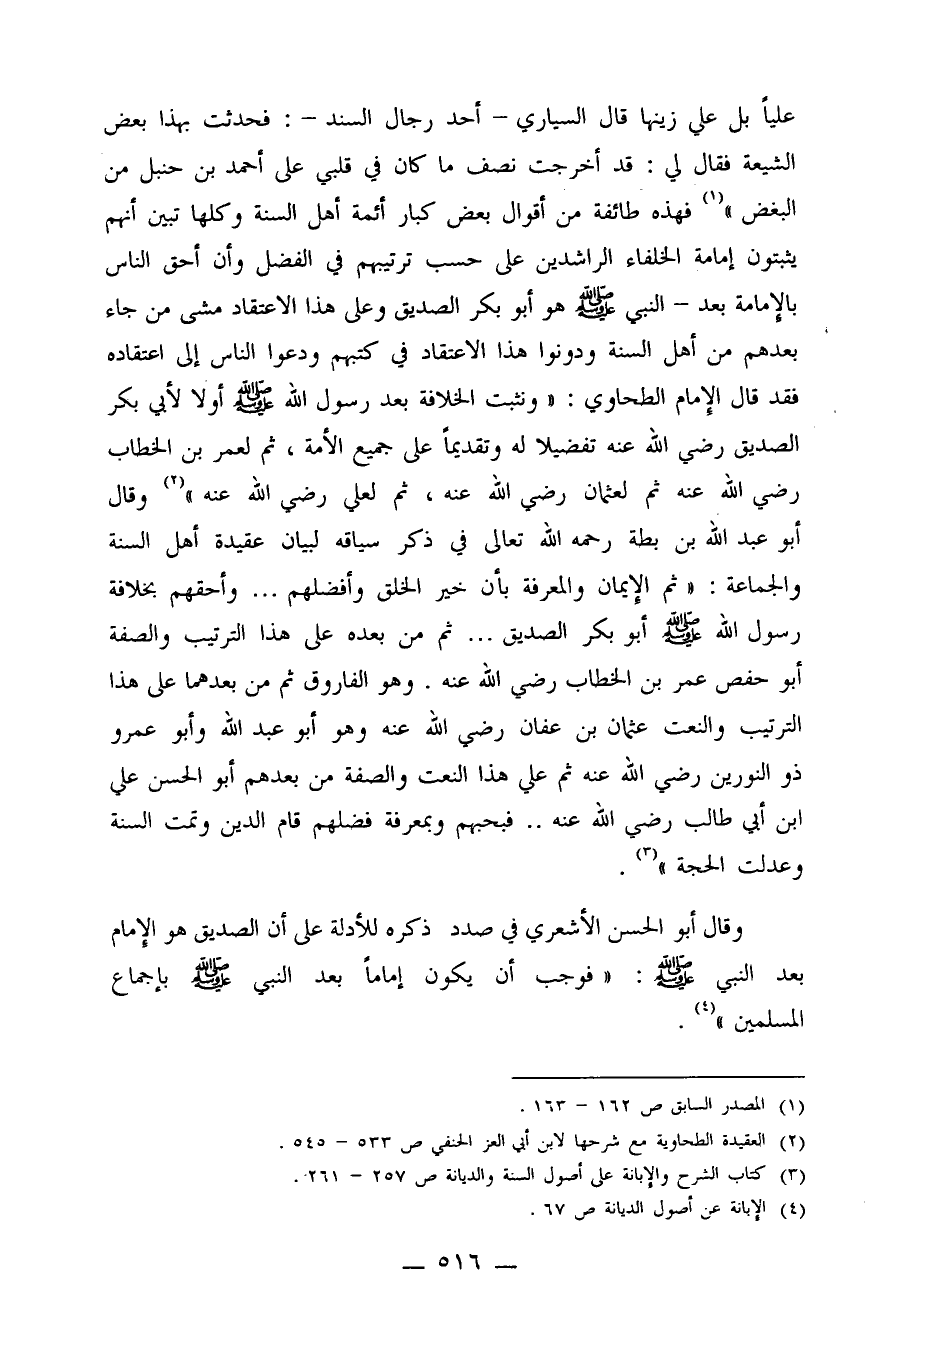 علياً بل علي زينها قال السياري – أحد رجال السند – : فحدثت بهذا بعض
الشيعة فقال لي : قد أخرجت نصف ما كان في قلبي على أحمد بن حنبل من
البغض »(١) فهذه طائفة من أقوال بعض كبار أئمة أهل السنة وكلها تبين أنهم
يثبتون إمامة الخلفاء الراشدين على حسب ترتيبهم في الفضل وأن أحق الناس
بالإمامة بعد – النبي ﷺ هو أبو بكر الصديق وعلى هذا الاعتقاد مشى من جاء
بعدهم من أهل السنة ودونوا هذا الاعتقاد في كتبهم ودعوا الناس إلى اعتقاده
فقد قال الإمام الطحاوي : « ونثبت الخلافة بعد رسول الله ﷺ أولا لأبي بكر
الصديق رضي الله عنه تفضيلا له وتقديماً على جميع الأمة ، ثم لعمر بن الخطاب
رضي الله عنه ثم لعثمان رضي الله عنه ، ثم لعلي رضي الله عنه »(٢) وقال
أبو عبد الله بن بطة رحمه الله تعالى في ذكر سياقه لبيان عقيدة أهل السنة
والجماعة : « ثم الإيمان والمعرفة بأن خير الخلق وأفضلهم ... وأحقهم بخلافة
رسول الله ﷺ أبو بكر الصديق ... ثم من بعده على هذا الترتيب والصفة
أبو حفص عمر بن الخطاب رضي الله عنه . وهو الفاروق ثم من بعدهما على هذا
الترتيب والنعت عثمان بن عفان رضي الله عنه وهو أبو عبد الله وأبو عمرو
ذو النورين رضي الله عنه ثم على هذا النعت والصفة من بعدهم أبو الحسن علي
ابن أبي طالب رضي الله عنه .. فبحبهم وبمعرفة فضلهم قام الدين وتمت السنة
وعدلت الحجة »(٣) .
وقال أبو الحسن الأشعري في صدد ذكره للأدلة على أن الصديق هو الإمام
بعد النبي ﷺ : « فوجب أن يكون إماماً بعد النبي ﷺ بإجماع
المسلمين »(٤) .
(١) المصدر السابق ص ١٦٢ – ١٦٣ .
(٢) العقيدة الطحاوية مع شرحها لابن أبي العز الحنفي ص ٥٣٣ – ٥٤٥ .
(٣) كتاب الشرح والإبانة على أصول السنة والديانة ص ٢٥٧ – ٢٦١ .
(٤) الإبانة عن أصول الديانة ص ٦٧ .
— ٥١٦ —